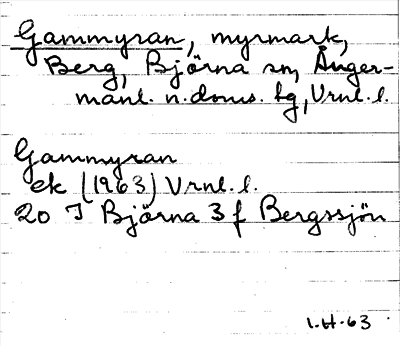 Gammyran, myrmark,
Berg, Björna sn, Ånger-
manl. n. doms. hg, Vrnl. l.
Gammyran
ek (1963) Vrnl. l.
20 I Björna 3 f Bergssjön
1.H.63